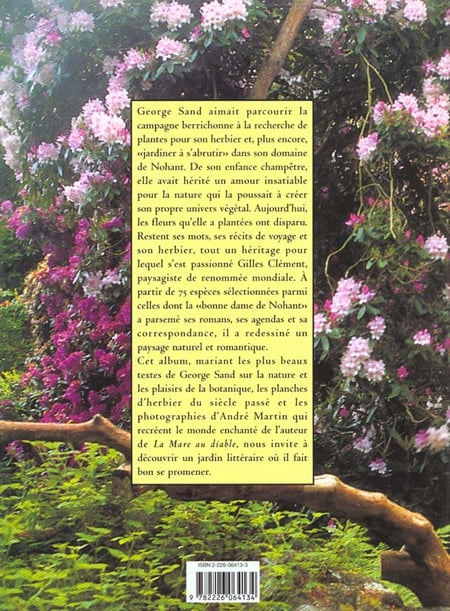 George Sand aimait parcourir la
campagne berrichonne à la recherche de
plantes pour son herbier et, plus encore,
«jardiner à s'abrutir» dans son domaine
de Nohant. De son enfance champêtre,
elle avait hérité un amour insatiable
pour la nature qui la poussait à créer
son propre univers végétal. Aujourd'hui,
les fleurs qu'elle a plantées ont disparu.
Restent ses mots, ses récits de voyage et
son herbier, tout un héritage pour
lequel s'est passionné Gilles Clément,
paysagiste de renommée mondiale. À
partir de 75 espèces sélectionnées parmi
celles dont la «bonne dame de Nohant»
a parsemé ses romans, ses agendas et sa
correspondance, il a redessiné un
paysage naturel et romantique.
Cet album, mariant les plus beaux
textes de George Sand sur la nature et
les plaisirs de la botanique, les planches
d'herbier du siècle passé et les
photographies d'André Martin qui
recréent le monde enchanté de l'auteur
de La Mare au diable, nous invite à
découvrir un jardin littéraire où il fait
bon se promener.
ISBN 2-226-06413-3
9 782226 064134